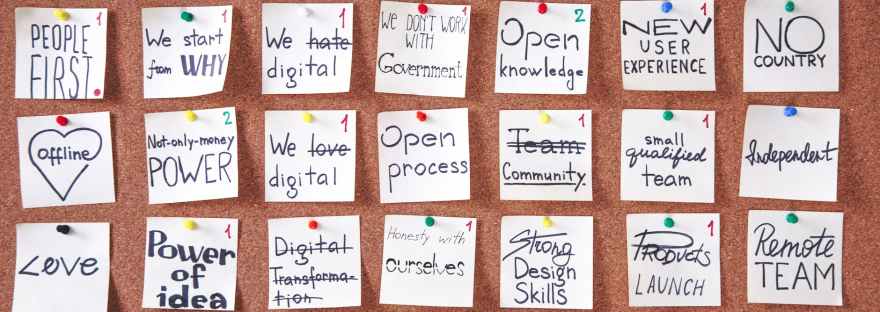 1
PEOPLE
FIRST.
1
We start
from WHY
1
We hate
digital
1
We DON'T WORK
WITH
Government
2
Open
knowledge
1
NEW
USER
EXPERIENCE
NO
COUNTRY
Offline
2
Not-only-money
POWER
1
We love
digital
Open
process
1
Team
Community
1
small
qualified
team
Independent
Love
1
Power
of
idea
Digital
Transforma-
tion
1
Honesty with
ourselves
Strong
Design
Skills
1
Products
LAUNCH
Remote
TEAM